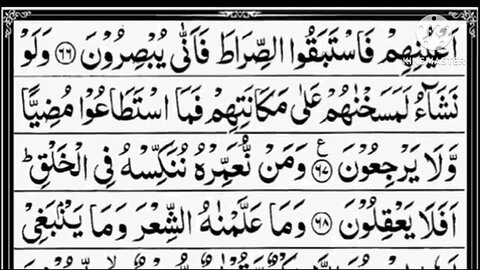 اَعْيُنِهِمْ فَاسْتَبَقُوا الصِّرَاطَ فَاَنّٰى يُبْصِرُوْنَ ﴿٦٦﴾ وَلَوْ
نَشَآءُ لَمَسَخْنٰهُمْ عَلٰى مَكَانَتِهِمْ فَمَا اسْتَطَاعُوْا مُضِيًّا
وَّلَا يَرْجِعُوْنَ ﴿٦٧﴾ ع وَمَنْ نُّعَمِّرْهُ نُنَكِّسْهُ فِى الْخَلْقِ ؕ
اَفَلَا يَعْقِلُوْنَ ﴿٦٨﴾ وَمَا عَلَّمْنٰهُ الشِّعْرَ وَمَا يَنْۢبَغِىْ
KINEMASTER